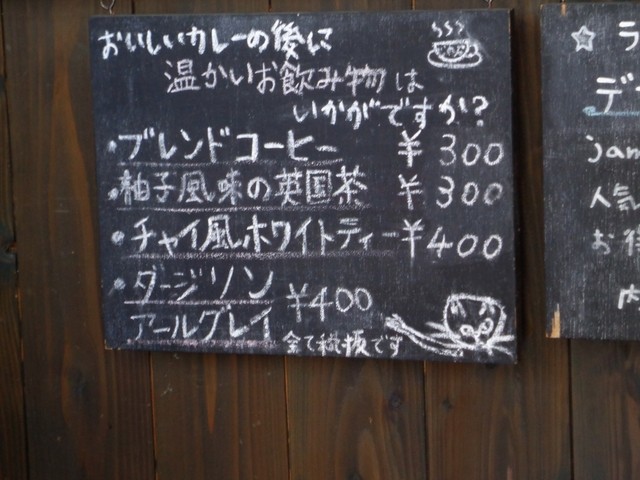 おいしいカレーの後に
温かいお飲み物は
いかがですか?
・ブレンドコーヒー ¥300
・柚子風味の英国茶 ¥300
・チャイ風ホワイトティー ¥400
・ダージリン
アールグレイ ¥400
全て税抜です
☆ラ
デ
jam
人気
お得
内